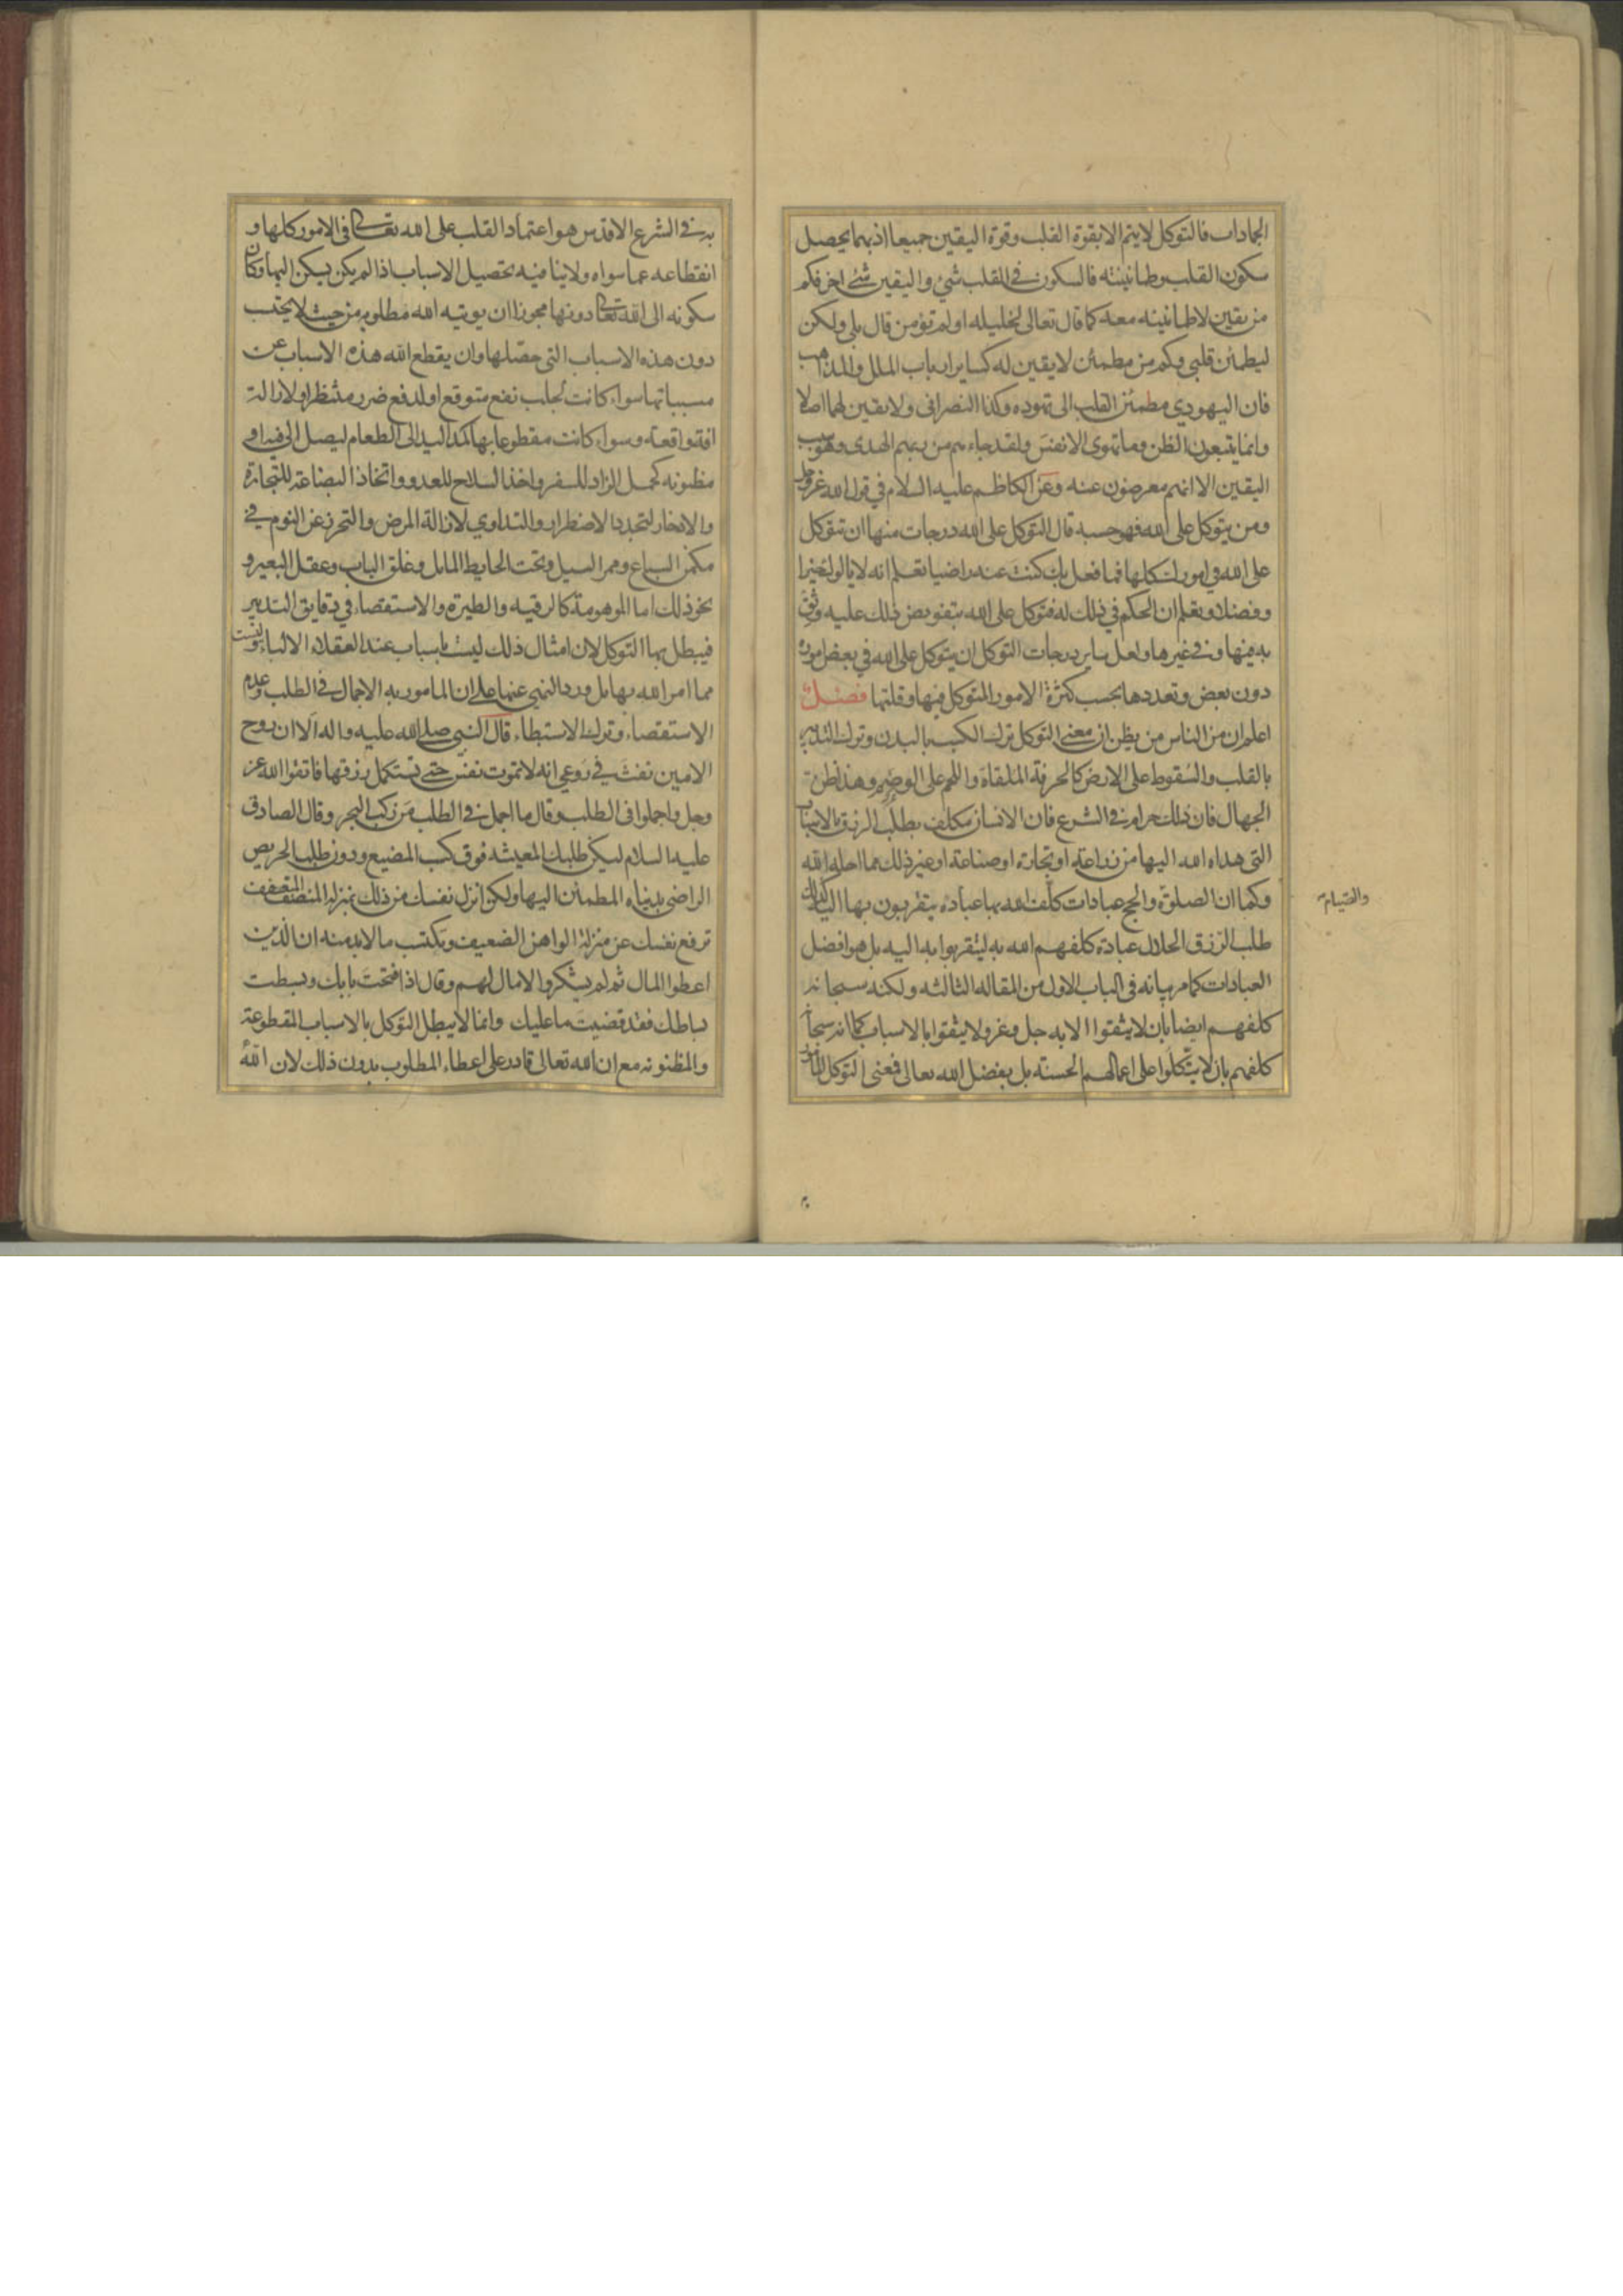 الجمادات فالتوكل لا يتم الا بقوة القلب وقوة اليقين جميعا اذ بهما يحصل
سكون القلب وطمانينته فالسكون في القلب شيء واليقين شيء اخر فكم
من يقين لا طمانينه معه كما قال تعالى لخليله اولم تؤمن قال بلى ولكن
ليطمئن قلبي وكم من مطمئن لا يقين له كساير ارباب الملل والمذاهب
فان اليهودي مطمئن القلب الى تهوده وكذا النصراني ولا يقين لهما اصلا
وانما يتبعون الظن وما تهوى الانفس ولقد جاءهم من ربهم الهدى وهو سبب
اليقين الا انهم معرضون عنه وعن الكاظم عليه السلام في قول الله عز وجل
ومن يتوكل على الله فهو حسبه قال التوكل على الله درجات منها ان تتوكل
على الله في امورك كلها فما فعل بك كنت عنه راضيا تعلم انه لا يالوك خيرا
وفضلا وتعلم ان الحكم في ذلك له فتوكل على الله بتفويض ذلك عليه وثق
به فيها وفي غيرها ولعل ساير درجات التوكل ان يتوكل على الله في بعض اموره
دون بعض وتعددها بحسب كثرة الامور المتوكل فيها وقلتها فصل
اعلم ان من الناس من يظن ان معنى التوكل ترك الكسب بالبدن وترك التدبير
بالقلب والسقوط على الارض كالخرقة الملقاة واللحم على الوضم وهذا ظن
الجهال فان ذلك حرام في الشرع فان الانسان مكلف بطلب الرزق بالاسباب
التي هداه الله اليها من زراعة او تجارة او صناعة او غير ذلك مما احله الله
وكما ان الصلوة والحج عبادات كلف الله بها عباده يتقربون بها اليه كذلك
والصيام
طلب الرزق الحلال عبادة كلفهم الله به ليتقربوا به اليه بل هو افضل
العبادات كما مر بيانه في الباب الاول من المقاله الثالثه ولكنه سبحانه
كلفهم ايضا بان لا يثقوا الا به جل وعز ولا يثقوا بالاسباب كما انه سبحانه
كلفهم بان لا يتكلوا على اعمالهم الحسنه بل بفضل الله تعالى فمعنى التوكل المامور
به في الشرع الاقدس هو اعتماد القلب على الله تعالى في الامور كلها و
انقطاعه عما سواه ولا ينافيه تحصيل الاسباب اذا لم يكن يسكن اليها وكان
سكونه الى الله تعالى دونها مجوزا ان يوتيه الله مطلوبه من حيث لا يحتسب
دون هذه الاسباب التي حصلها وان يقطع الله هذه الاسباب عن
مسبباتها سواء كانت لجلب نفع متوقع او لدفع ضرر منتظر او لازالة
افة واقعة وسواء كانت مقطوعا بها كمد اليد الى الطعام ليصل الى فيه او
مظنونه كحمل الزاد للسفر واخذ السلاح للعدو واتخاذ البضاعة للتجارة
والادخار لتجدد الاضطرار والتداوي لازالة المرض والتحرز عن النوم في
مكمن السباع وممر السيل وتحت الحايط المايل وغلق الباب وعقل البعير و
نحو ذلك اما الموهومة كالرقيه والطيرة والاستقصاء في دقايق التدبير
فيبطل بها التوكل لان امثال ذلك ليست باسباب عند العقلاء الالباء وليست
مما امر الله بها بل ورد النهي عنها على ان المامور به الاجمال في الطلب وعدم
الاستقصاء وترك الاستبطاء قال النبي صلى الله عليه واله الا ان روح
الامين نفث في روعي انه لا تموت نفس حتى تستكمل رزقها فاتقوا الله عز
وجل واجملوا في الطلب وقال ما اجمل في الطلب من ركب البحر وقال الصادق
عليه السلام ليكن طلبك المعيشه فوق كسب المضيع ودون طلب الحريص
الراضي بدنياه المطمئن اليها ولكن انزل نفسك من ذلك بمنزلة المنصف المتعفف
ترفع نفسك عن منزلة الواهن الضعيف وتكتسب ما لا بد منه ان الذين
اعطوا المال ثم لم يشكروا لا مال لهم وقال اذا فتحت بابك وبسطت
بساطك فقد قضيت ما عليك وانما لا يبطل التوكل بالاسباب المقطوعة
والمظنونه مع ان الله تعالى قادر على اعطاء المطلوب بدون ذلك لان الله